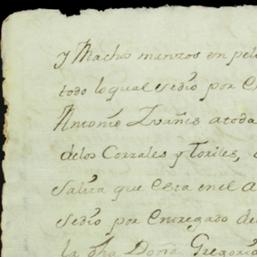 y Machos mansos en pelo
todo lo qual se dio por E
Antonio Ivañes a toda
de los Corrales y Toriles,
saliza que esta en el a
se dio por Entregado de
la dha Doña Gregori